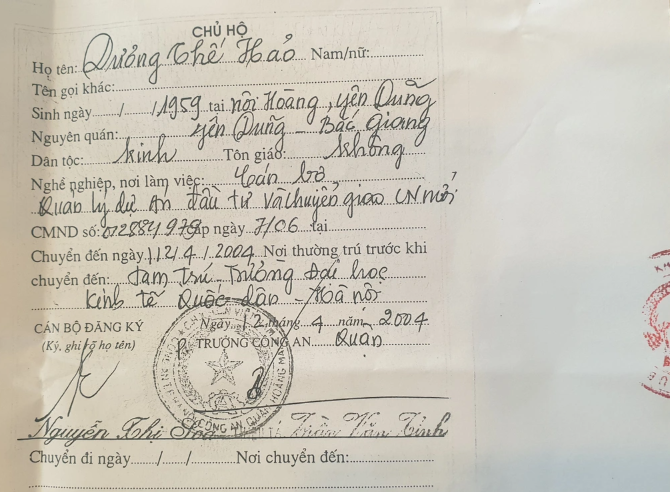 CHỦ HỘ
Họ tên: Dương Thế Hảo Nam/nữ:
Tên gọi khác:
Sinh ngày / / 1959 tại nội Hoàng, yên Dũng
Nguyên quán: yên Dũng - Bắc Giang
Dân tộc: kinh Tôn giáo: không
Nghề nghiệp, nơi làm việc: Cán bộ
Quản lý dự án đầu tư và chuyển giao CN mới
CMND số: 012884979 cấp ngày 7/06 tại
Chuyển đến ngày 12/4/2004 Nơi thường trú trước khi
chuyển đến: tạm trú - Trường Đại học
kinh tế Quốc dân - Hà nội
CÁN BỘ ĐĂNG KÝ Ngày 12 tháng 4 năm 2004
(Ký, ghi rõ họ tên) TRƯỞNG CÔNG AN Quận
CÔNG AN QUẬN HOÀNG MAI
Nguyễn Thị Trần Văn Tính
Chuyển đi ngày / / Nơi chuyển đến: